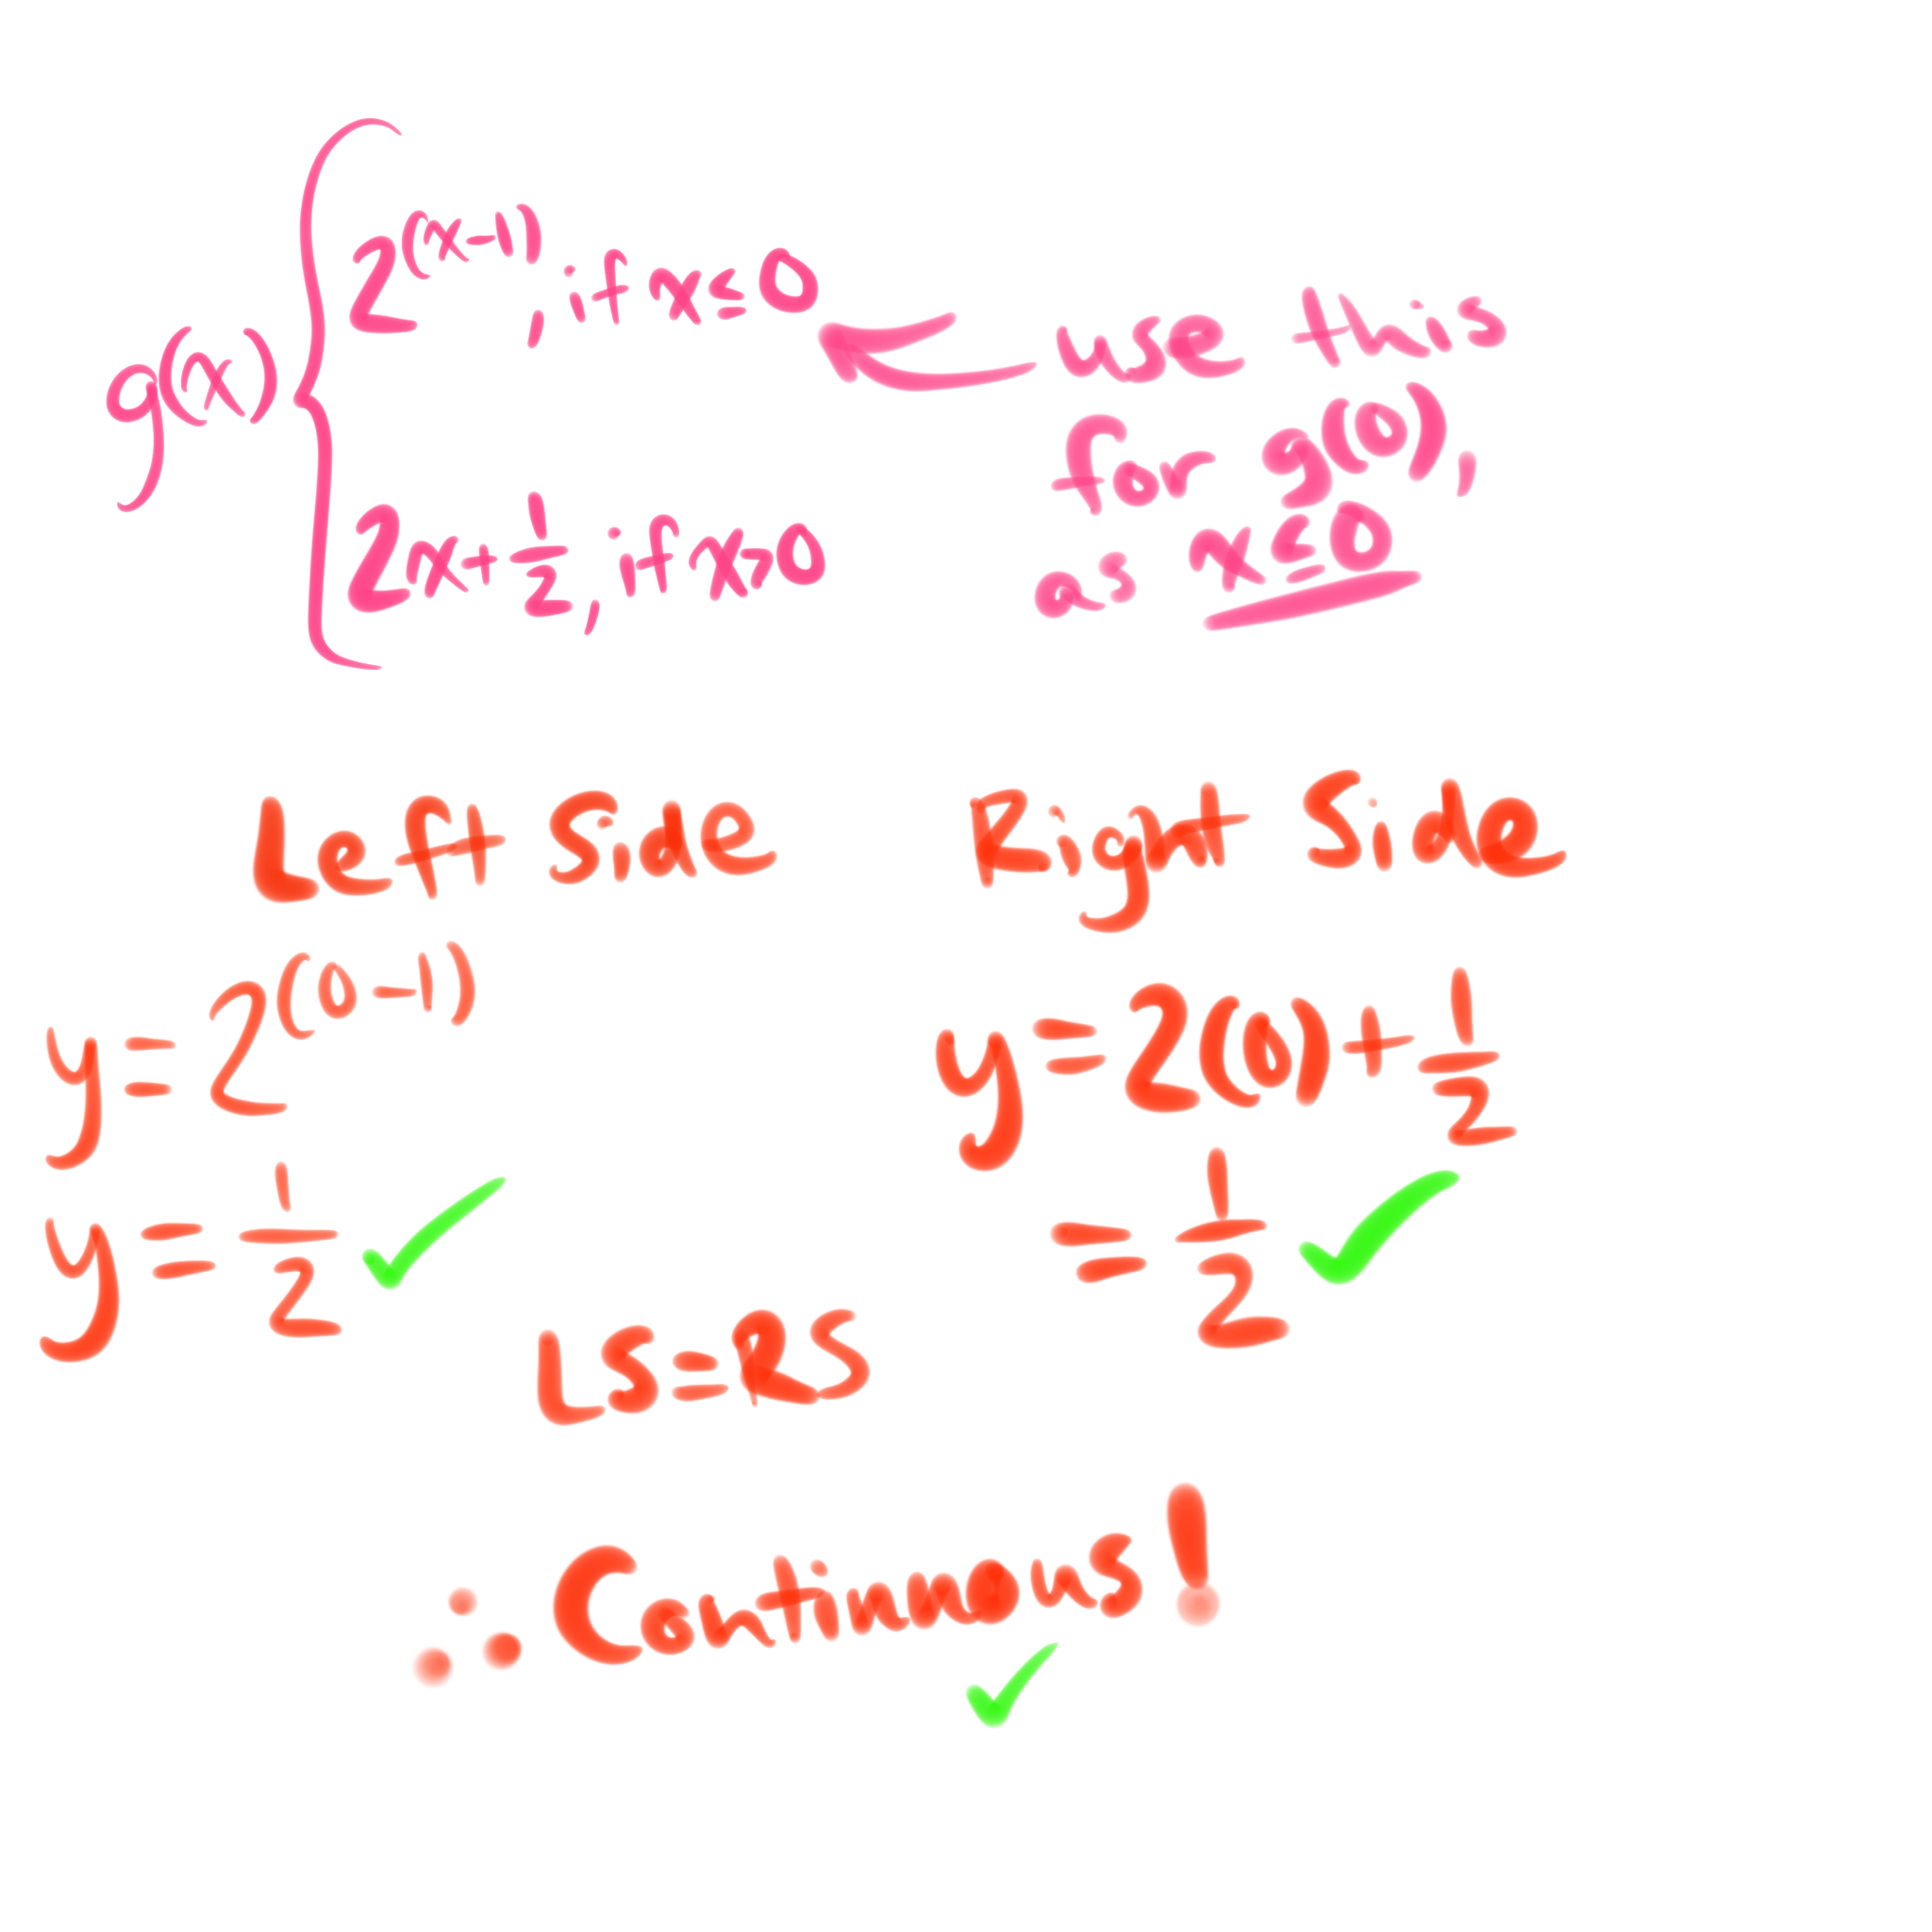 g(x) { 2^(x-1), if x≤0
2x+1/2, if x>0
use this
for g(0),
as x≤0
Left Side
y=2^(0-1)
y=1/2 ✓
Right Side
y=2(0)+1/2
=1/2 ✓
LS=RS
∴ Continuous! ✓